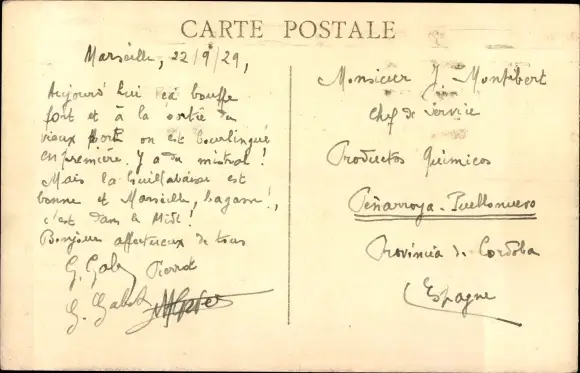 CARTE POSTALE
Marseille, 22/9/29,
Aujourd'hui ça bouffe
fort et à la sortie du
vieux port on est bourlingué
en première. Y a du mistral!
Mais la bouillabaisse est
bonne et Marseille, bagasse!,
c'est dans le Midi!
Bonjour affectueux de tous
G. Pierrot
G.
Monsieur J. Montibert
Chef de Service
Productos Quimicos
Peñarroya-Puebllonuevo
Provincia de Cordoba
Espagne